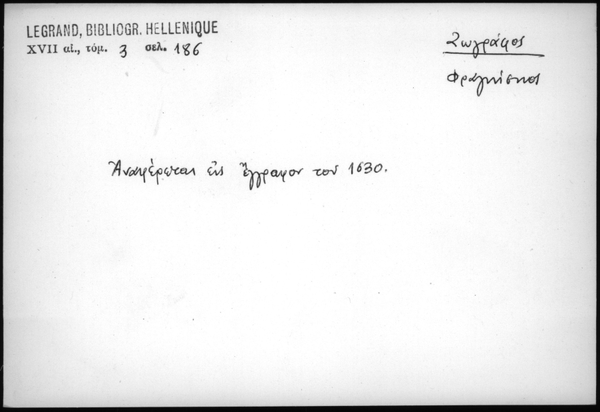 LEGRAND, BIBLIOGR. HELLENIQUE
XVII αἰ., τόμ. 3 σελ. 186
Ζωγράφος
Φραγκίσκος
Ἀναφέρεται εἰς ἔγγραφον τοῦ 1630.